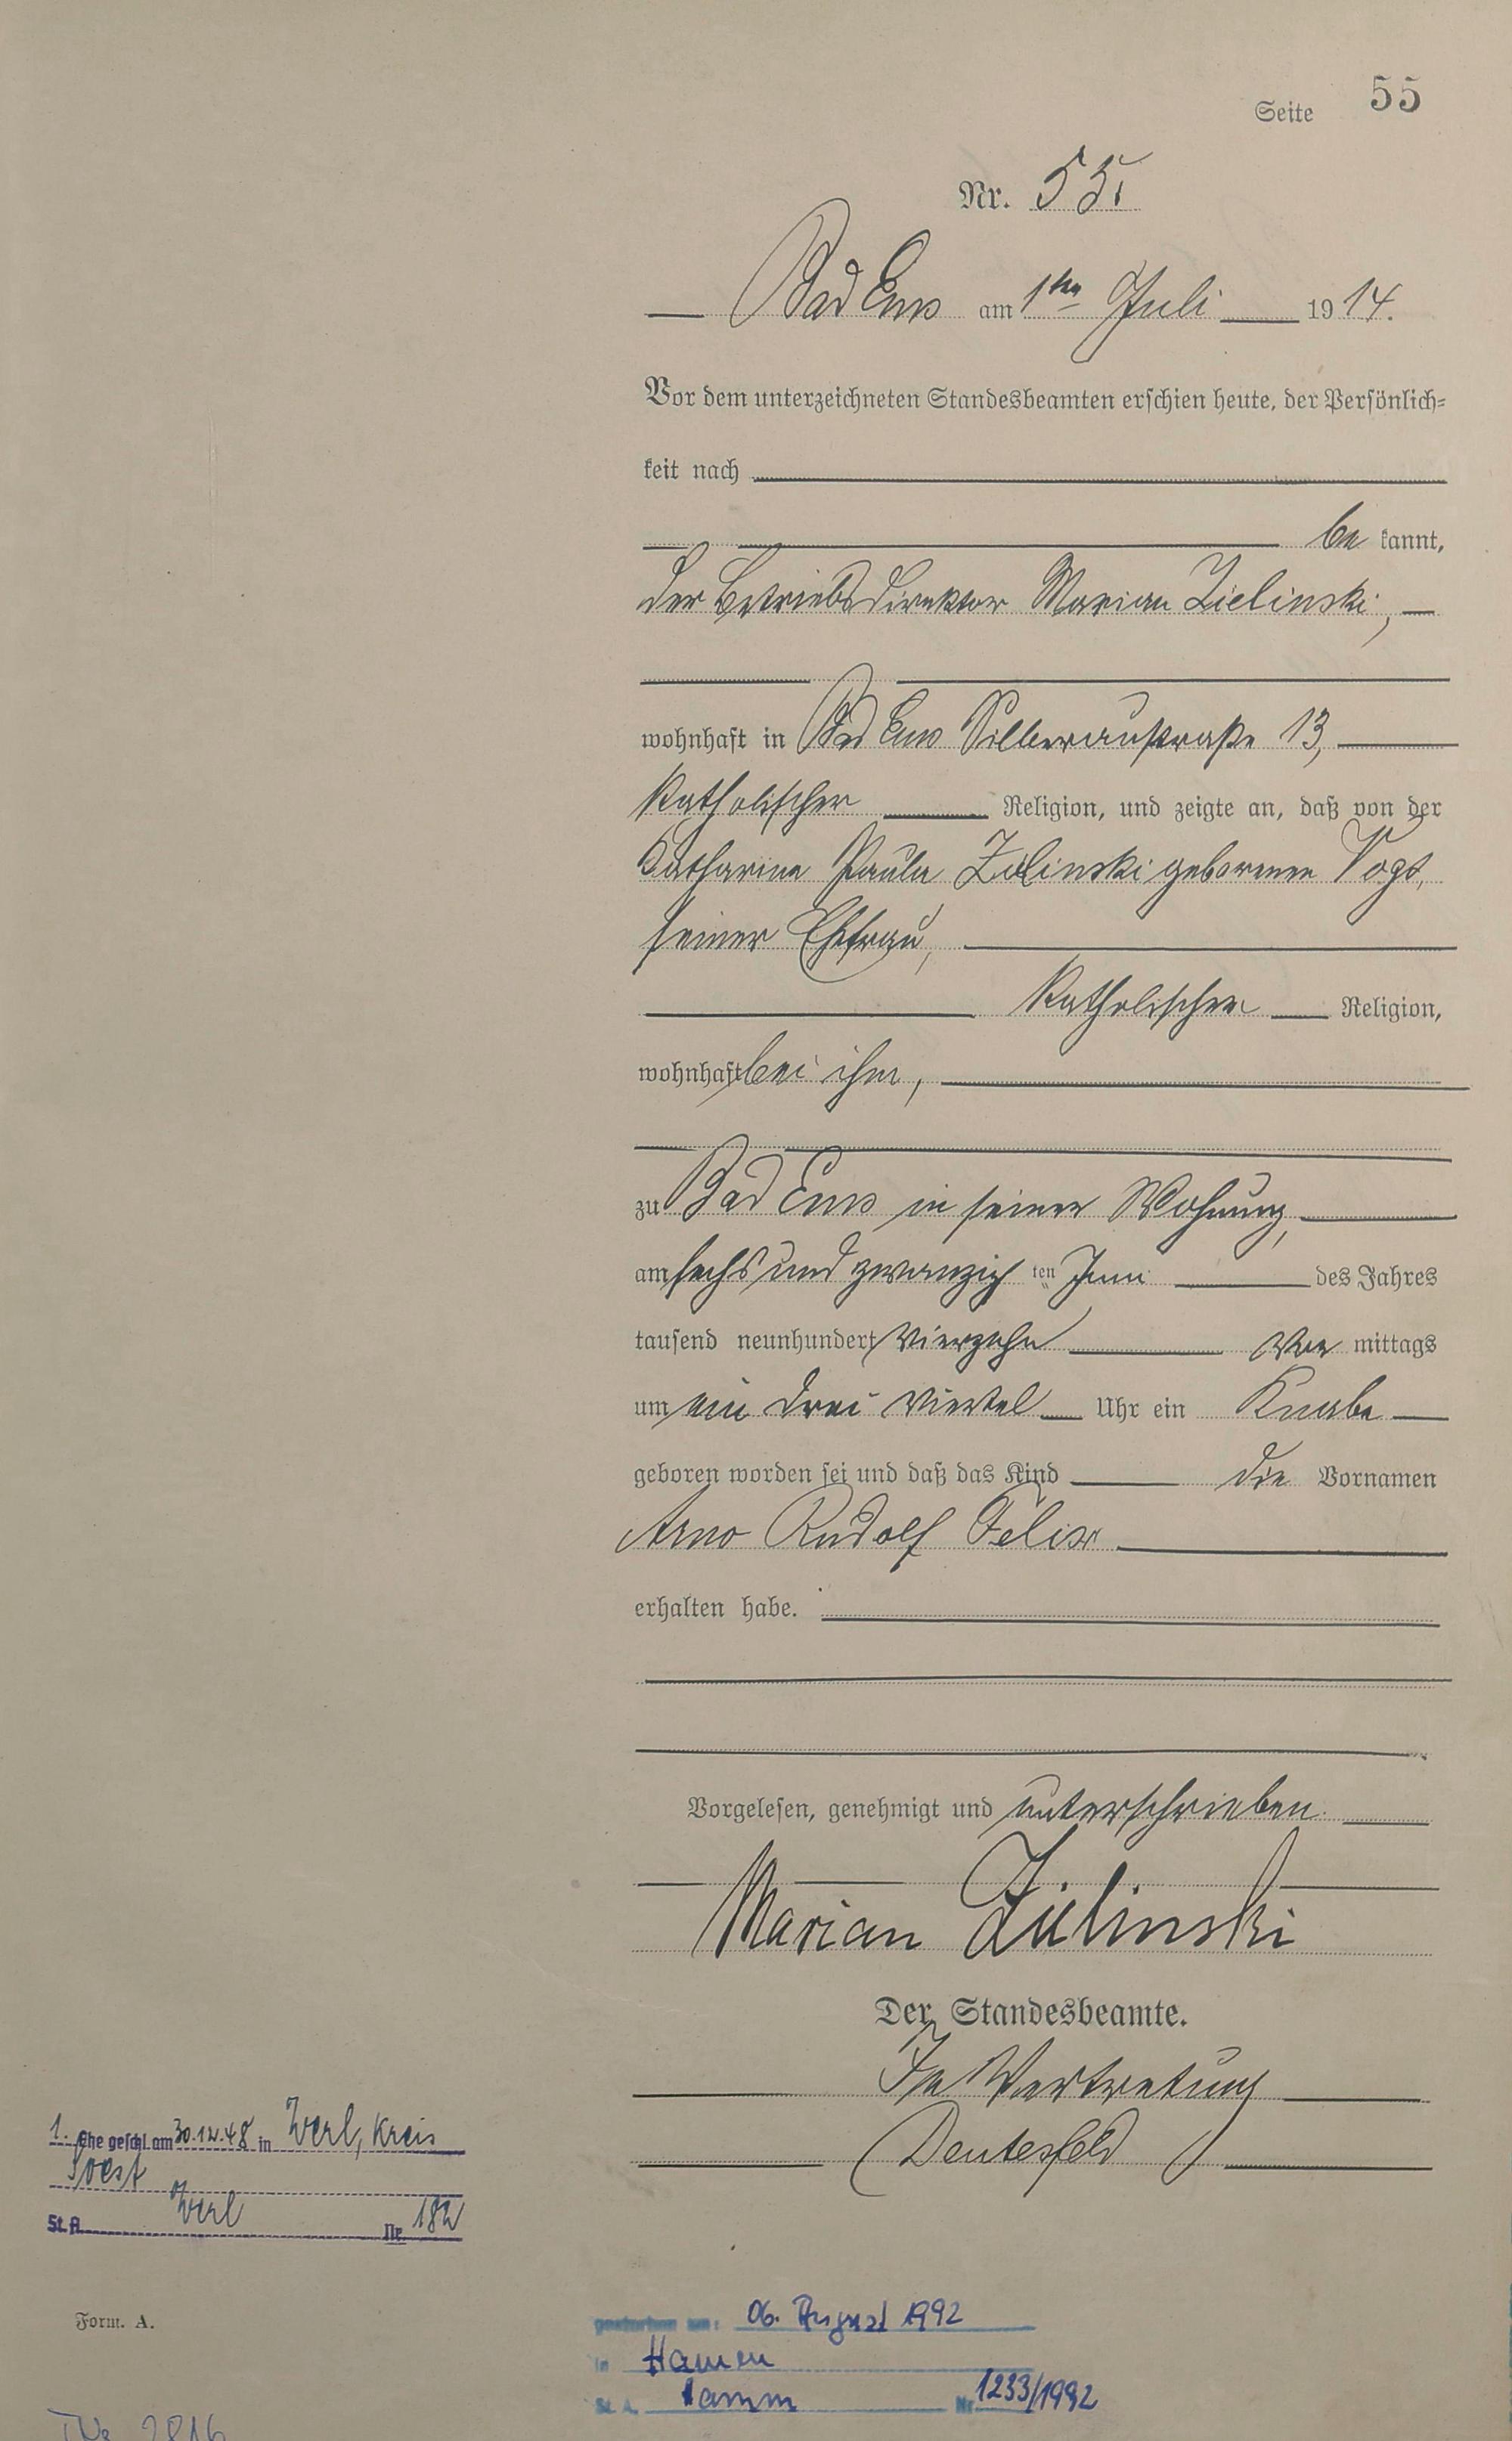 Seite 55
Nr. 55.
Bad Ems am 1ten Juli 1914.
Vor dem unterzeichneten Standesbeamten erschien heute, der Persönlich=
keit nach
be kannt,
der Betriebsdirektor Marian Zielinski,
wohnhaft in Bad Ems Silberaustraße 13,
katholischer Religion, und zeigte an, daß von der
Catharina Paula Zielinski geborenen Vogt,
seiner Ehefrau,
katholischer Religion,
wohnhaft bei ihm,
zu Bad Ems in seiner Wohnung,
am sechs und zwanzig ten Juni des Jahres
tausend neunhundert vierzehn Vor mittags
um ein drei viertel Uhr ein Knabe
geboren worden sei und daß das Kind die Vornamen
Arno Rudolf Felix
erhalten habe.
Vorgelesen, genehmigt und unterschrieben.
Marian Zielinski
Der Standesbeamte.
In Vertretung
Deutesfeld
1. Ehe geschl. am 30.12.48 in Werl, Kreis
Soest
St.A. Werl Nr. 182
Form. A.
gestorben am: 06. August 1992
in Hamm
St. A. Hamm Nr. 1233/1992